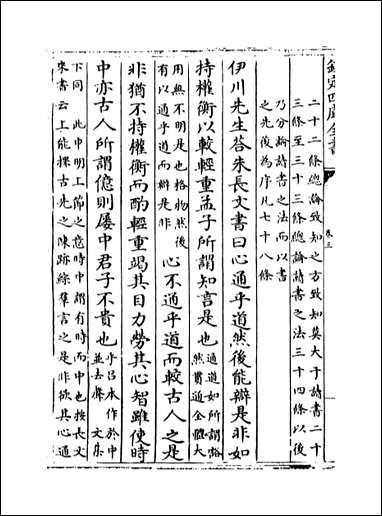 欽定四庫全書
卷三
二十二條總論致知之方致知莫大于讀書二十
三條至三十三條總論讀書之法三十四條以後
乃分論讀書之法而以書
之先後為序凡七十八條
伊川先生答朱長文書曰心通乎道然後能辯是非如
持權衡以較輕重孟子所謂知言是也
通道如所謂豁
然貫通全體大
用無不明是也格物然後
有以通乎道而辯是非
心不通乎道而較古人之是
非猶不持權衡而酌輕重竭其目力勞其心智雖使時
中亦古人所謂億則屢中君子不貴也
乎吕本作於中
並去聲 文集
下同 此申明上節之意時中謂有時而中也按長文
來書云上能探古先之陳跡綜羣言之是非欲其心通